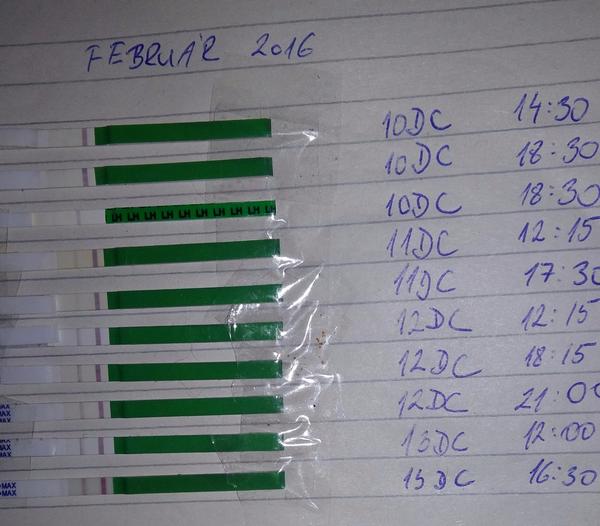 FEBRUÁR 2016
10DC 14:30
10DC 18:30
LH LH LH LH LH LH LH LH LH LH 10DC 18:30
11DC 12:15
11DC 17:30
12DC 12:15
12DC 18:15
MAX
MAX
MAX 12DC 21:00
MAX
MAX
MAX 13DC 12:00
MAX
MAX 15DC 16:30